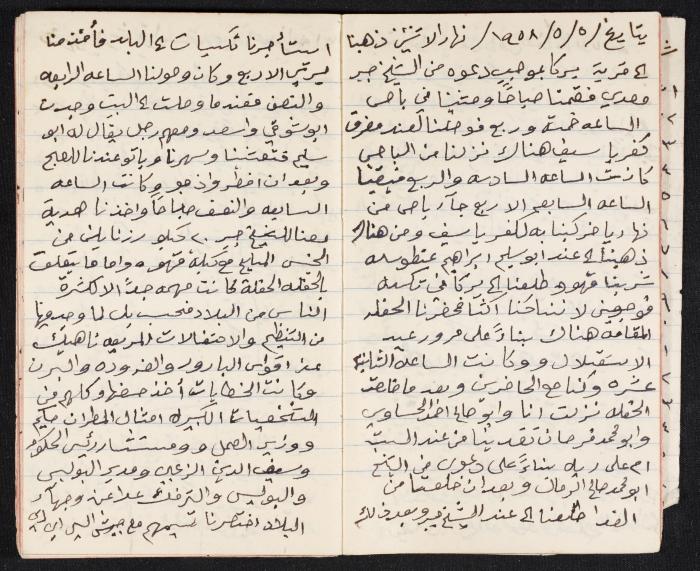 بتاريخ ٥/٥/١٩٥٨/ نهار الاثنين ذهبنا
الى قرية يركا بموجب دعوه من الشيخ جبر
معدي فقمنا صباحًا ومشينا في باص
الساعه خمسة وربع فوصلنا لعند مفرق
كفر ياسيف هناك نزلنا من الباص
كانت الساعه السادسه والربع فبقينا
الساعه السابعه الا ربع جآ باص من
نهاريا فركبنا به لكفر ياسيف ومن هناك
ذهبنا الى عند ابو سليم ابراهيم
شربنا قهوه وطلعنا الى يركا في تكسه
فوجدن لا
المقامة هناك بناءً على مرور عيد
الاستقلال وكانت الساعة الثانية
عشره وكنا مع الحاضرين وبعد ما خلصت
الحفله نزلت انا وابو صالح
وابو محمد فرحان تغدينا من عند الست
ام علي ربله بناءً على دعوى من الشيخ
ابو محمد صالح الرمان وبعد ان خلصنا من
الغدا طلعنا الى عند الشيخ جبر وبعد ذلك
استأجرنا تكسيات الى البلد فأخذت منا
ليرتين الا ربع وكان وصولنا الساعه الرابعه
والنصف فعندما وصلت الى البيت وجدت
ابو شوقي واسعد ومعهم رجل يقال له ابو
سليم فتعشينا وسهرنا وباتو عندنا للصبح
وبعد ان افطروا ذهبو وكانت الساعه
السابعه والنصف صباحًا واخذنا هدية
معنا للشيخ جبر ٢٠ كيلو رز نازلين من
الجنس المليح مع كيله قهوه واما ما يتعلق
بالحفله الحفلة كانت مهمه جدًا لا لكثرة
الناس من البلاد فحسب بل لما وجد فيها
من التنظيم والاحتفالات المربعه ناهيك
عن اقواس البارود والفروده والبرن
وكانت الخطابات أخذ حفظها وكلهم من
الشخصيات الكبيره امثال المطران حكيم
ووزير العمل ومستشار رئيس الحكومه
وسيف الدين الزعبي ومدير البوليس
والبوليس والترفيك عدا عن وجهاء
البلاد اختصرنا تسيمهم مع جيوش